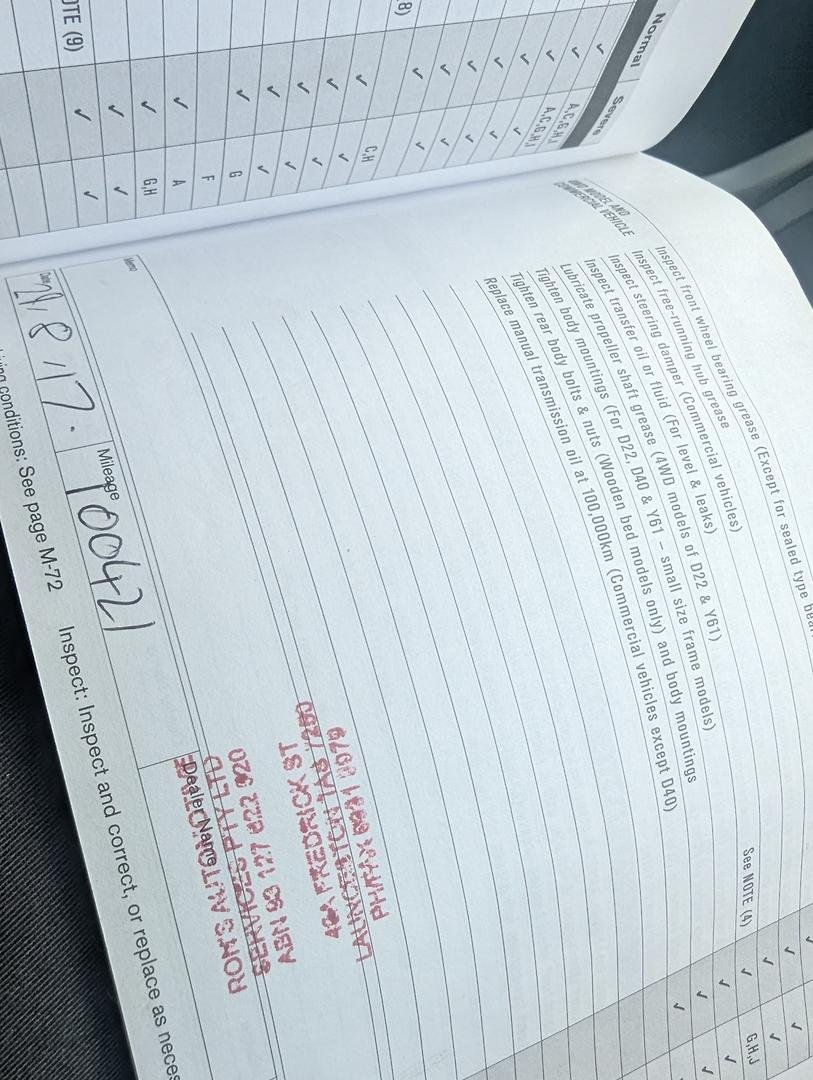 4WD MODEL AND
COMMERCIAL VEHICLE
Inspect front wheel bearing grease (Except for sealed type
Inspect free-running hub grease
Inspect steering damper (Commercial vehicles)
Inspect transfer oil or fluid (For level & leaks)
Lubricate propeller shaft grease (4WD models of D22 & Y61)
Tighten body mountings (For D22, D40 & Y61 – small size frame models)
Tighten rear body bolts & nuts (Wooden bed models only) and body mountings
Replace manual transmission oil at 100,000km (Commercial vehicles except D40)
See NOTE (4)
G,H,J
Memo
Date 28.8.17.
Mileage 100421
Dealer Name
RON'S AUTOMOTIVE
SERVICES PTY LTD
ABN 93 127 622 920
42A FREDRICK ST
LAUNCESTON TAS 7250
PH/FAX 6331 1979
conditions: See page M-72
Inspect: Inspect and correct, or replace as
Normal
Severe
A,C,G,H,J
A,C,G,H,J
C,H
G
F
A
G,H
8)
OTE (9)